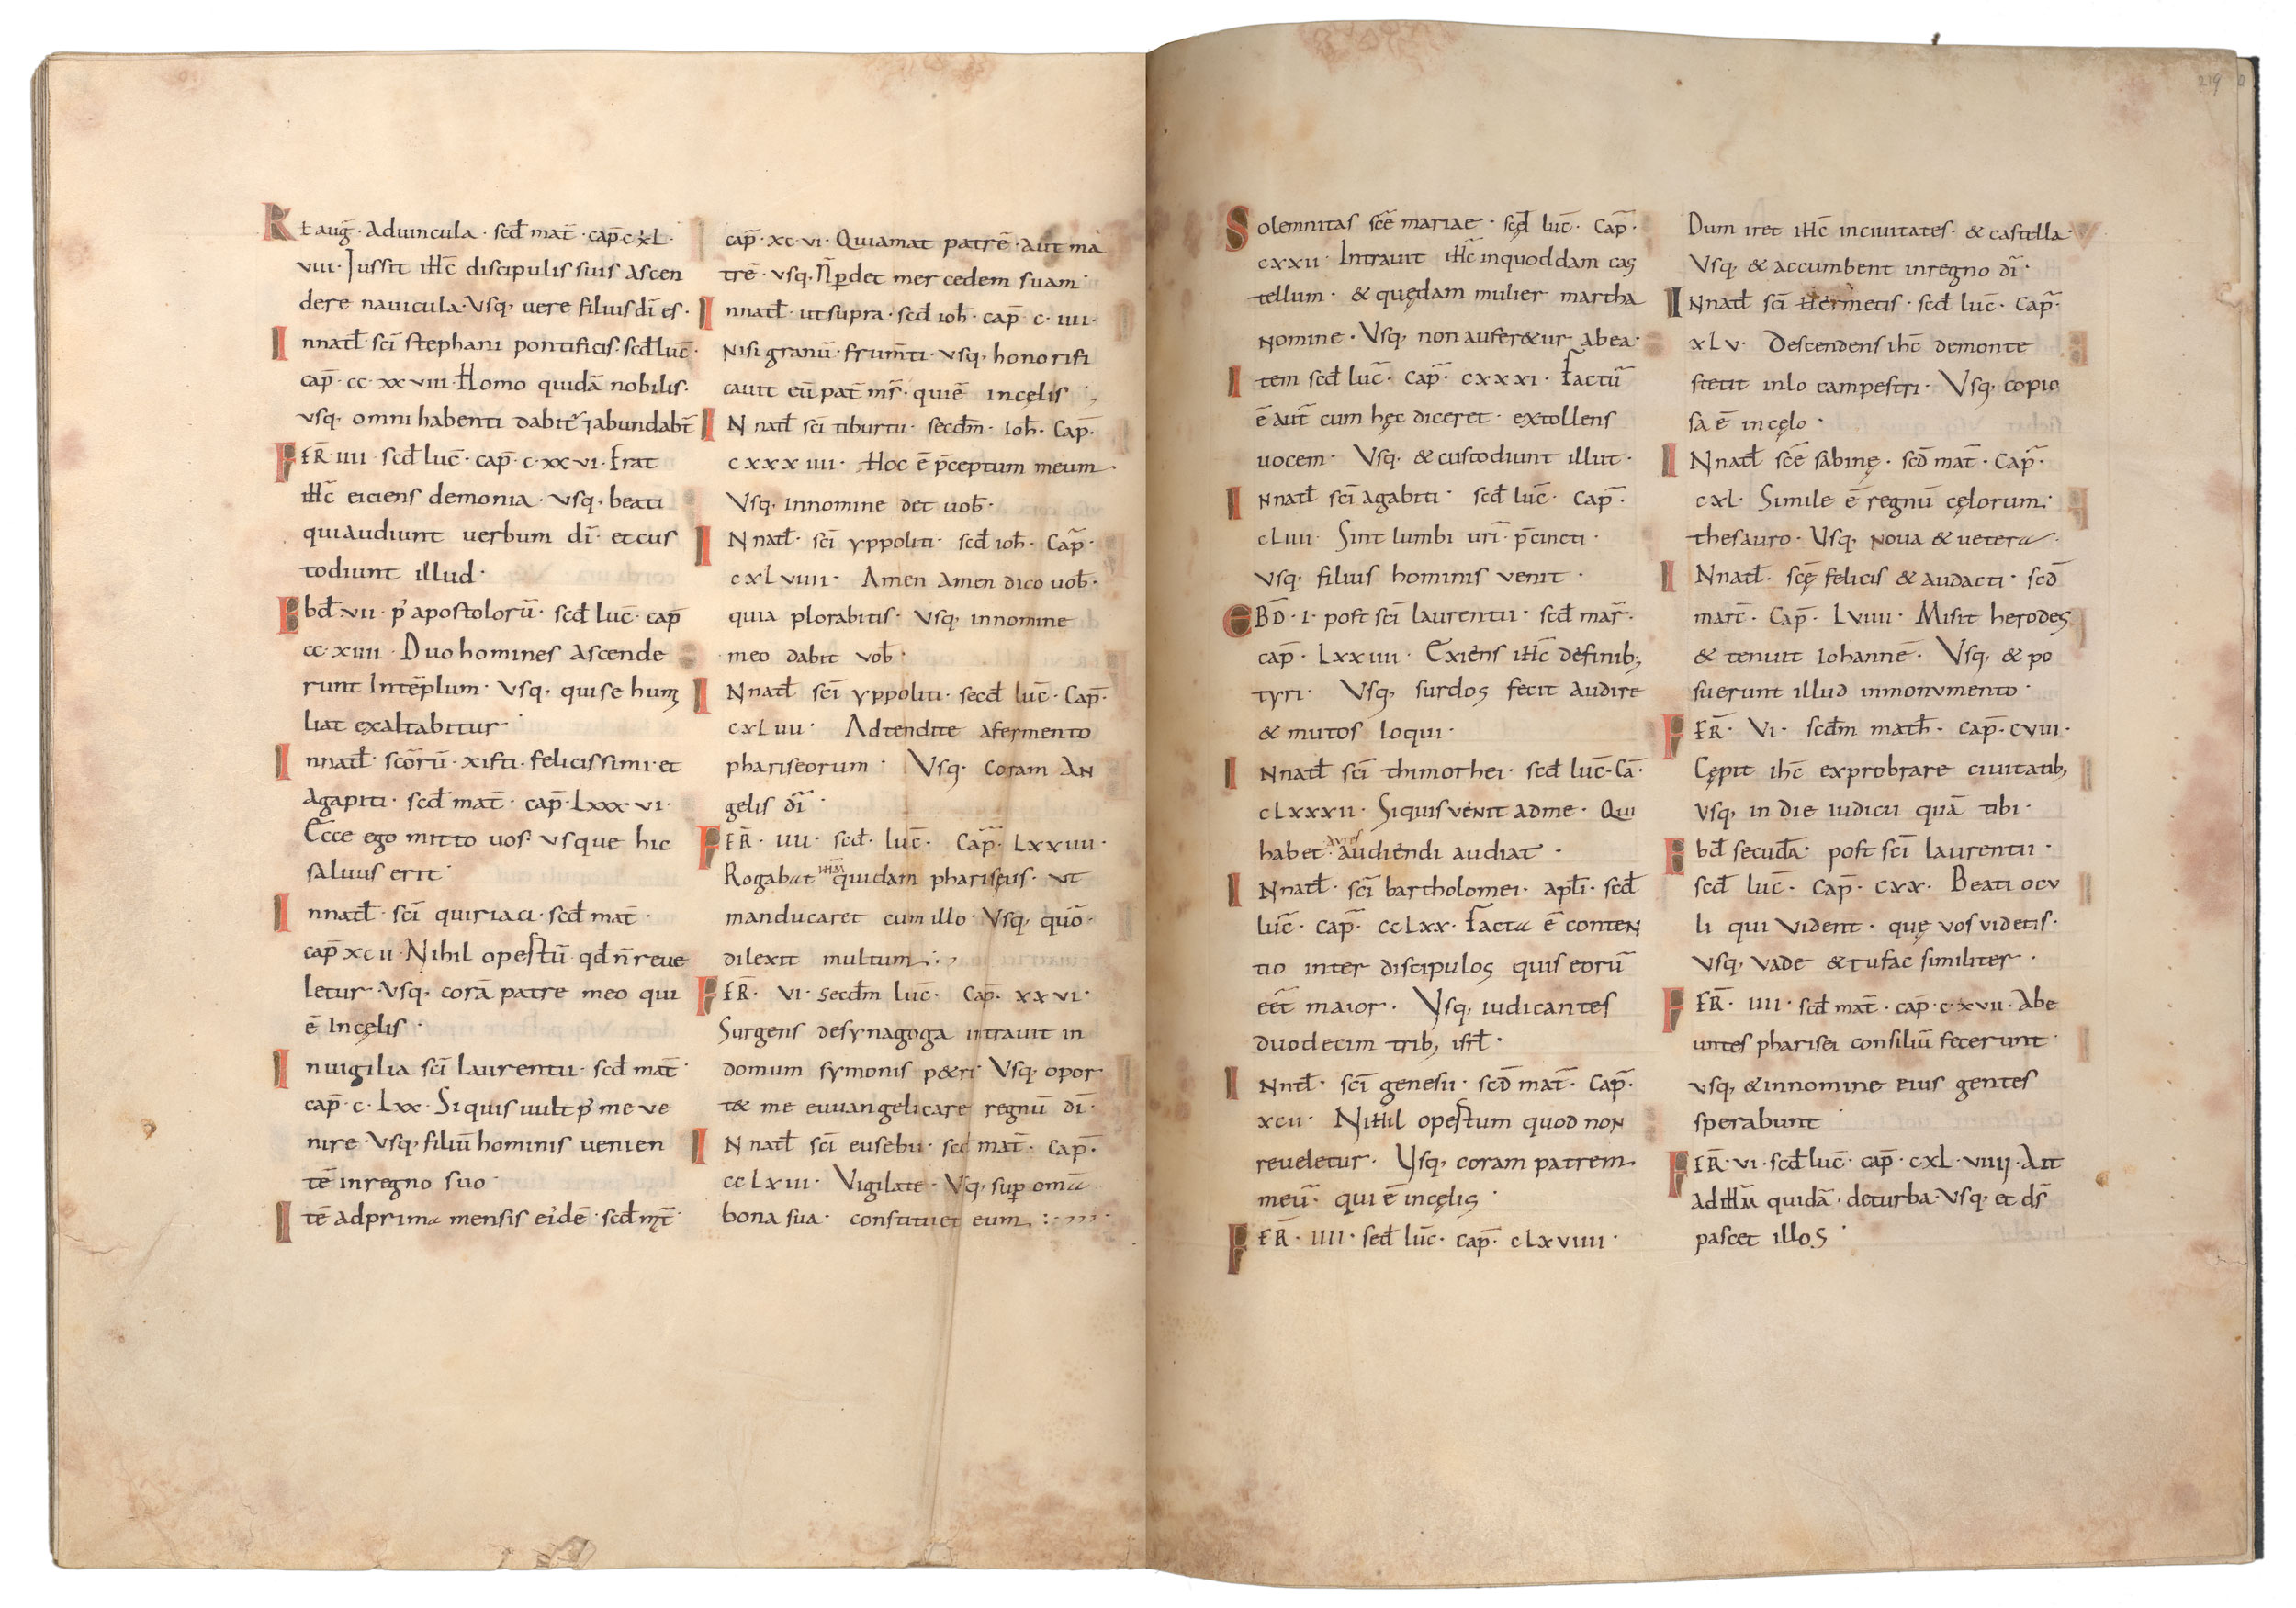 Kł aug̅· Aduincula· scd̅ mat̅· cap̅·c·xL·
viii· Jussit ihc̅ discipulis suis ascen
dere nauicula· Vsq; uere filius dī es·
Innatł· sci̅ stephani pontificis· scd̅ luc̅·
cap̅· cc·xxviii· Homo quidā nobilis·
vsq; omni habenti dabit᷑ ⁊abundabt̅
FER̅· iiii· scd̅ luc̅· cap̅· c·xxvi· Erat
ihc̅ eiciens demonia· vsq; beati
qui audiunt uerbum dī· et cus
todiunt illud·
Ebd̅ vii· p᷒ apostolorū· scd̅ luc̅· cap̅
cc·xiiii· Duo homines ascende
runt Inte̅plum· vsq; qui se humi
liat exaltabitur·
Innatł· sco̅rū· xisti· felicissimi· et
Agapiti· scd̅ mat̅· cap̅· Lxxxvi·
Ecce ego mitto uos· vsque hic
saluus erit·
Innatł· sci̅ quiriaci· scd̅ mat̅·
cap̅ xcii· Nihil opertū· qd̅ n̅ reue
letur· Vsq; corā patre meo qui
ē Incęlis·
Inuigilia sci̅ laurentii· scd̅ mat̅·
cap̅· c·Lxx· Siquis uult p᷒ me ve
nire· Vsq; filiū hominis uenien
tē inregno suo·
Itē adprima mensis eidē· scd̅ mt̅·
cap̅· xc·vi· Qui amat patrē· aut ma
trē· vsq; N̅ p̱det mercedem suam
Innatł· ut supra· scd̅ ioh̅· cap̅· c·iiii·
Nisi granū· frum̅ti· vsq; honorifi
cauit eū pat̅ m̅s· qui ē incęlis
INnatł· sci̅ tiburtii· secdm̅· Ioh̅· Cap̅·
cxxxiiii· Hoc ē p̅ceptum meum·
Vsq; innomine det uob̅·
INnatł· sci̅ yppoliti· scd̅ ioh̅· Cap̅·
cxLviiii· Amen amen dico uob̅·
quia plorabitis· Vsq; innomine
meo dabit vob̅·
INnatł· sci̅ yppoliti· secd̅ luc̅· Cap̅·
cxLuii· Adtendite afermento
phariseorum· Vsq; coram AN
gelis dī·
FER̅· iiii· scd̅· luc̅· Cap̅· Lxxiiii·
Rogabat ihm̅ quidam phariseus· ut
manducaret cum illo· Vsq; quō·
dilexit multum·
FER̅· vi· secdm̅ luc̅· Cap̅· xxvi·
Surgens desynagoga intrauit in
domum symonis p&ri· Vsq; opor
t& me euuangelicare regnū dī·
INnatł· sci̅ eusebii· scd̅ mat̅· Cap̅·
ccLxiii· Vigilate· Vsq; sup̱ omīa
bona sua· constituet eum
Solemnitas sce̅ mariae· scd̅ luc̅· Cap̅·
cxxii· Intrauit ihc̅ inquoddam cas
tellum· & quędam mulier martha
nomine· Vsq; non aufer&ur abea·
Item scd̅ luc̅· Cap̅· cxxxi· Factū
ē aut̅ cum hęc diceret· extollens
uocem· Vsq; & custodiunt illut·
INnatł· sci̅ agabiti· scd̅ luc̅· Cap̅·
cLuii· Sint lumbi uri̅· p̅cincti·
Vsq; filius hominis venit·
EBD̅· i· post sci̅ laurentii· scd̅ mar̅·
cap̅· Lxxiiii· Exiens ihc̅ definib;
tyri· Vsq; surdos fecit audire
& mutos loqui·
INnatł sci̅ thimothei· scd̅ luc̅· Ca̅·
cLxxxii· Siquis venit adme· Qui
habet aures audiendi audiat·
INnatł· sci̅ bartholomei· apłi· scd̅
luc̅· Cap̅· ccLxx· Facta ē conten
tio inter discipulos quis eorū
eēt maior· Vsq; iudicantes
duodecim trib; isrł·
INntł· sci̅ genesii· scd̅ mat̅· Cap̅·
xcii· Nihil opertum quod non
reueletur· Vsq; coram patrem
meū· qui ē incęlis·
FER̅· iiii· scd̅ luc̅· cap̅· cLxviiii·
Dum iret ihc̅ inciuitates· & castella·
Vsq; & accumbent inregno dī·
INnatł sci̅ Hermetis· scd̅ luc̅· Cap̅·
xLv· Descendens ihc̅ demonte
stetit inlo campestri· Vsq; copio
sa ē incęlo·
INnatł sce̅ sabinę· scd̅ mat̅· Cap̅·
cxl· Simile ē regnū cęlorum·
thesauro· Vsq; noua & uetera·
INnatł· scę felicis & audacti· scd̅
marc̅· Cap̅· Lviiii· Misit herodes
& tenuit Iohannē· Vsq; & po
suerunt illud inmonvmento·
FER̅· Vi· scdm̅ math̅· cap̅· cviii·
Cępit ihc̅ exprobrare ciuitatib;
Vsq; in die iudicii quā tibi·
Ebd̅ secūda· post sci̅ laurentii·
scd̅ luc̅· Cap̅· cxx· Beati ocv
li qui vident· quę vos videtis·
Vsq; vade & tu fac similiter·
FER̅· iiii· scd̅ mat̅· cap̅· c·xvii· Abe
untes pharisei consiliū fecerunt·
vsq; & innomine eius gentes
sperabunt·
FER̅· vi· scd̅ luc̅· cap̅· cxL·viiij· Ait
ad ihm̅ quidā· deturba· Vsq; et ds̅
pascet illos·
219